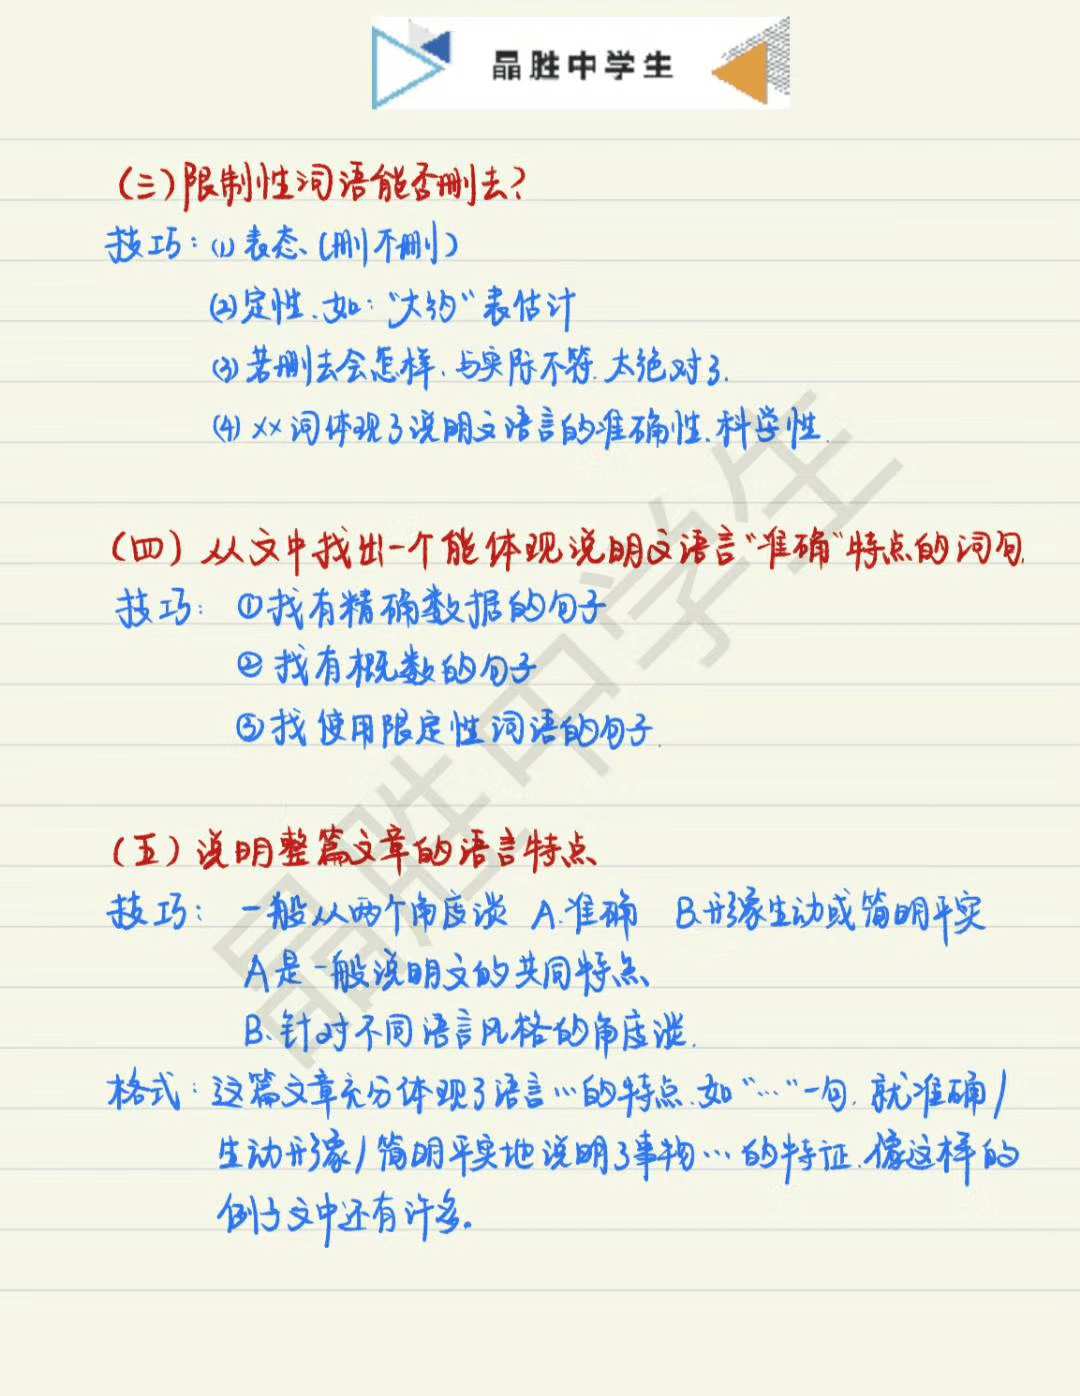 晶胜中学生
(三)限制性词语能否删去?
技巧:(1)表态、(删不删)
(2)定性.如:“大约”表估计
(3)若删去会怎样,与实际不符.太绝对了.
(4)××词体现了说明文语言的准确性.科学性.
(四)从文中找出一个能体现说明文语言“准确”特点的词句.
技巧: ①找有精确数据的句子
②找有概数的句子
③找使用限定性词语的句子.
(五)说明整篇文章的语言特点
技巧: 一般从两个角度谈 A.准确 B.形象生动或简明平实
A是一般说明文的共同特点
B.针对不同语言风格的角度谈.
格式:这篇文章充分体现了语言…的特点.如“…”一句,就准确/
生动形象/简明平实地说明了事物…的特征.像这样的
例子文中还有许多。
晶胜中学生